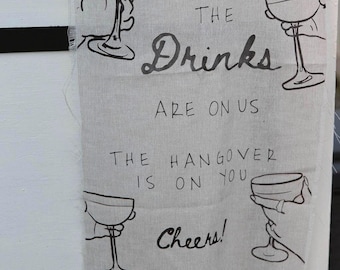 THE
Drinks
ARE ON US
THE HANGOVER
IS ON YOU
Cheers!